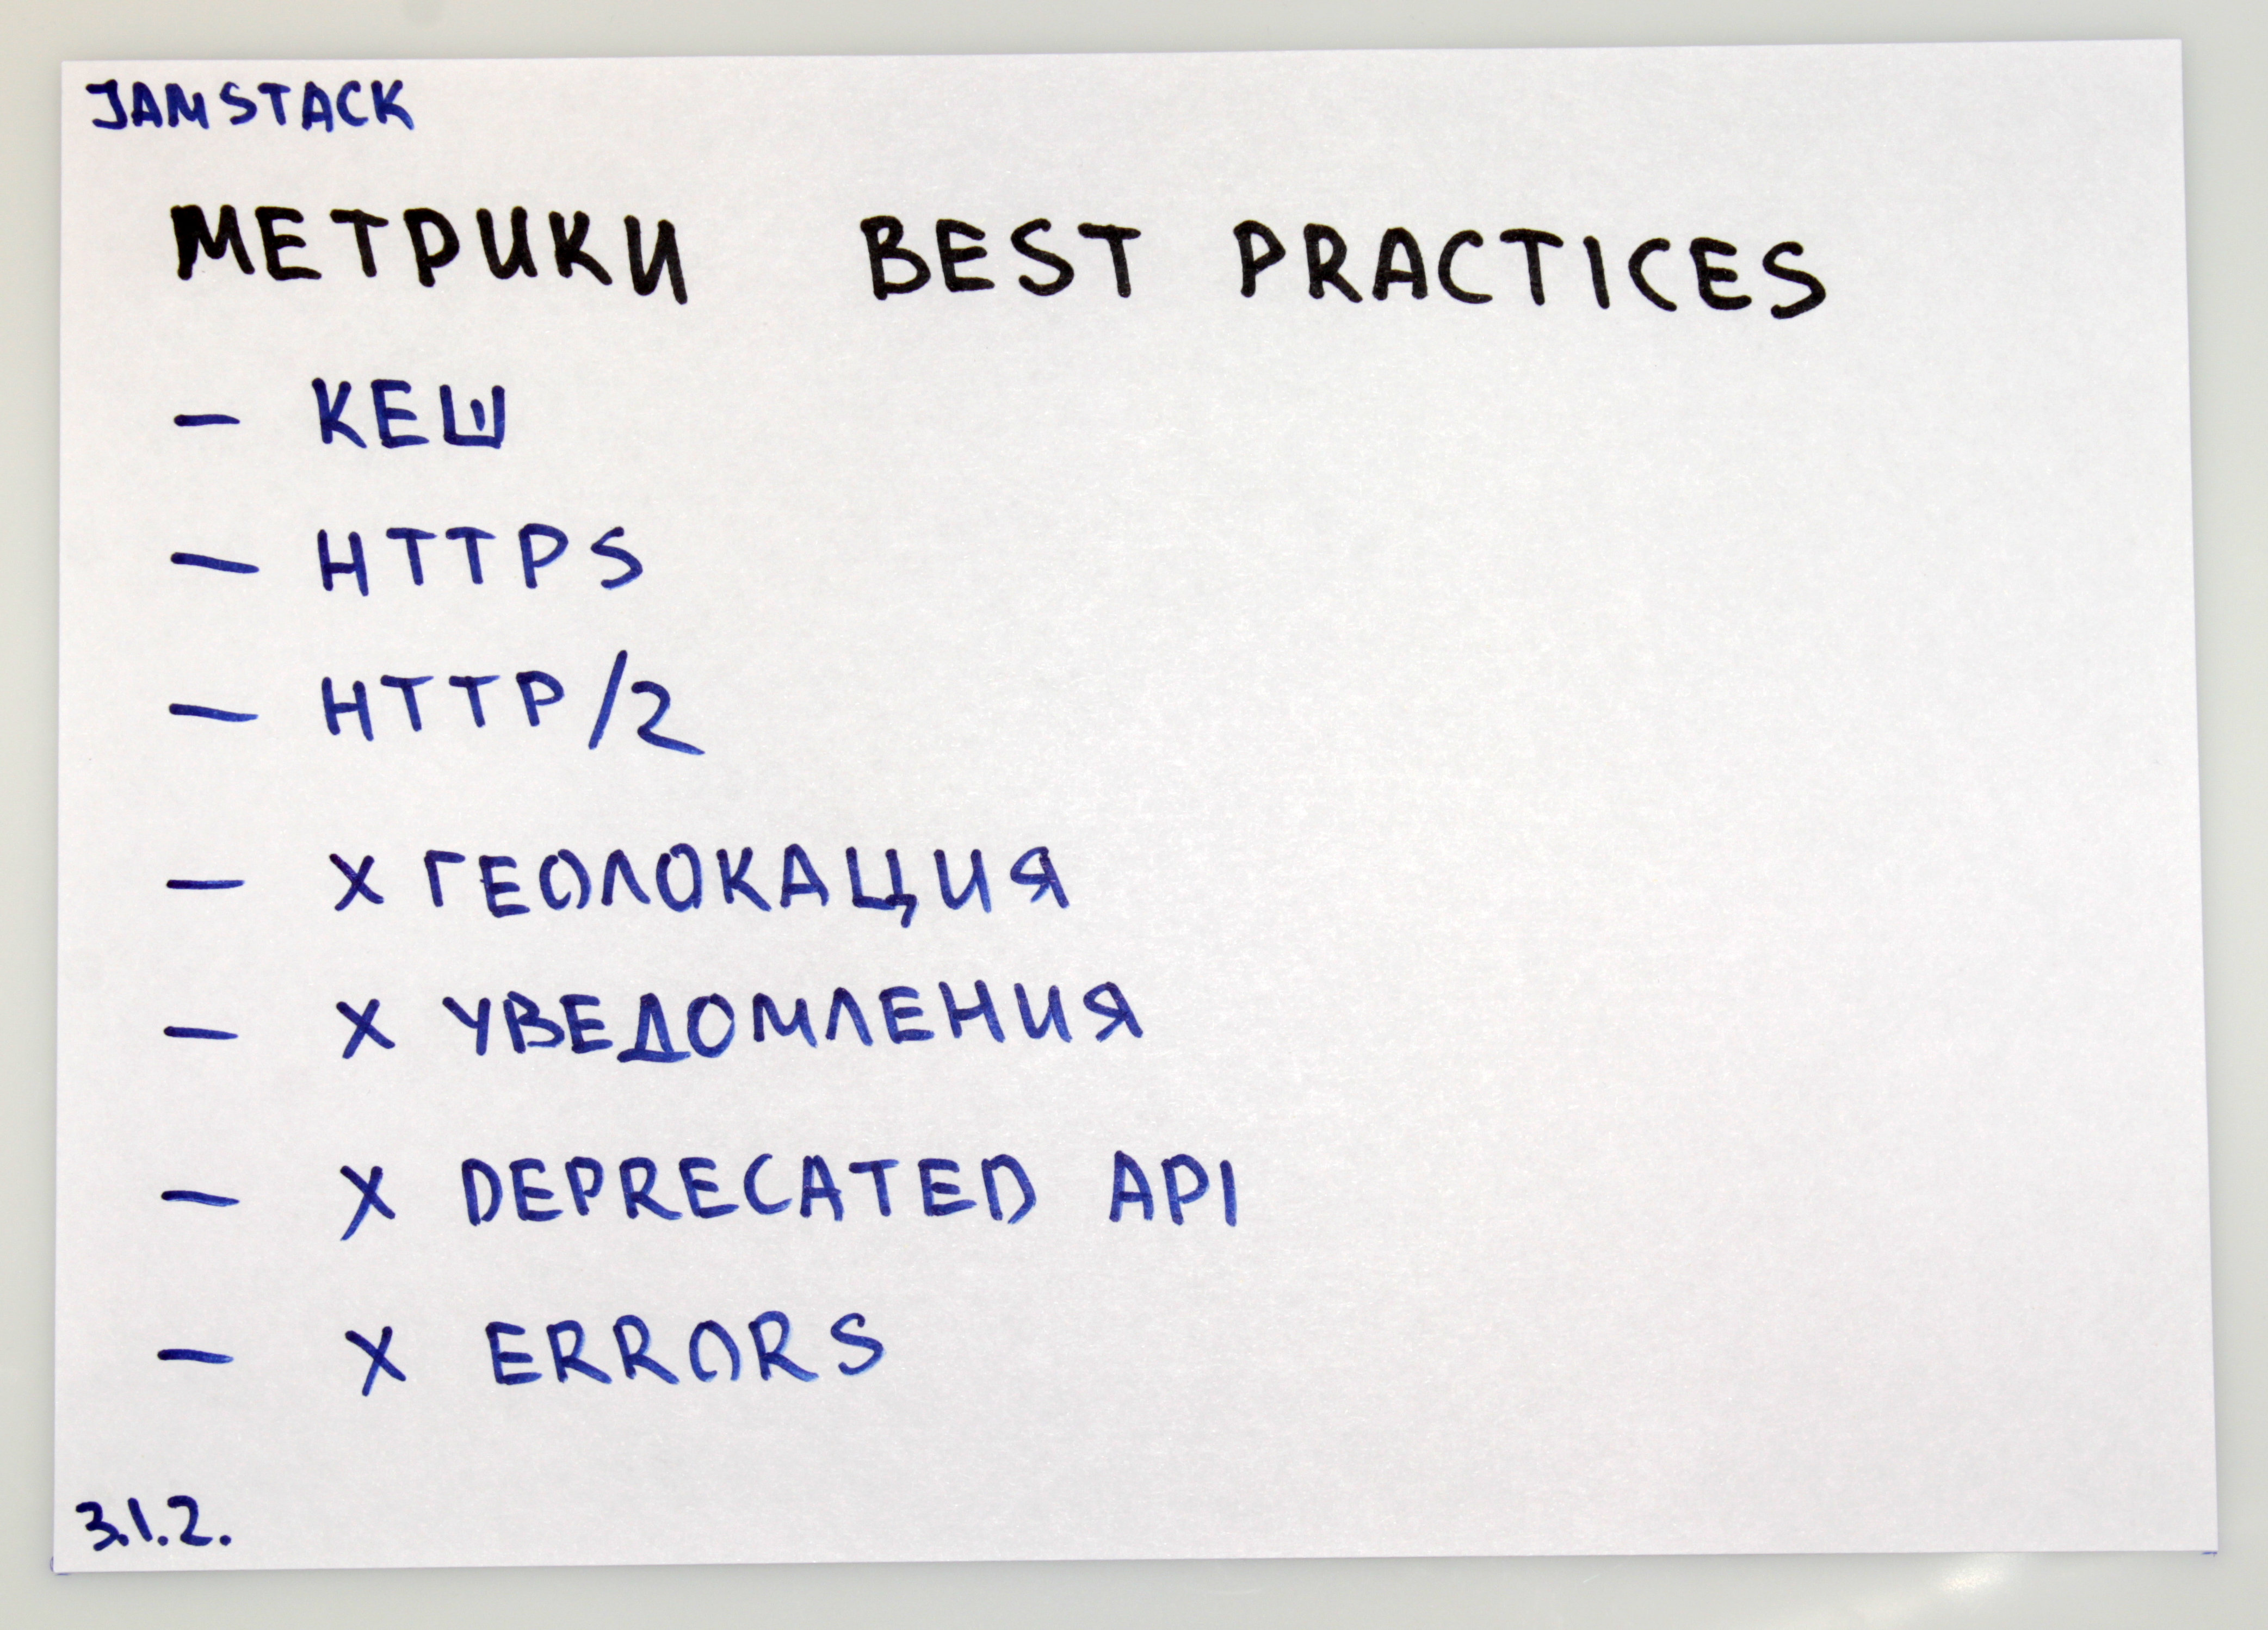 JAMSTACK
МЕТРИКИ BEST PRACTICES
— КЕШ
— HTTPS
— HTTP/2
— X ГЕОЛОКАЦИЯ
— X УВЕДОМЛЕНИЯ
— X DEPRECATED API
— X ERRORS
3.1.2.